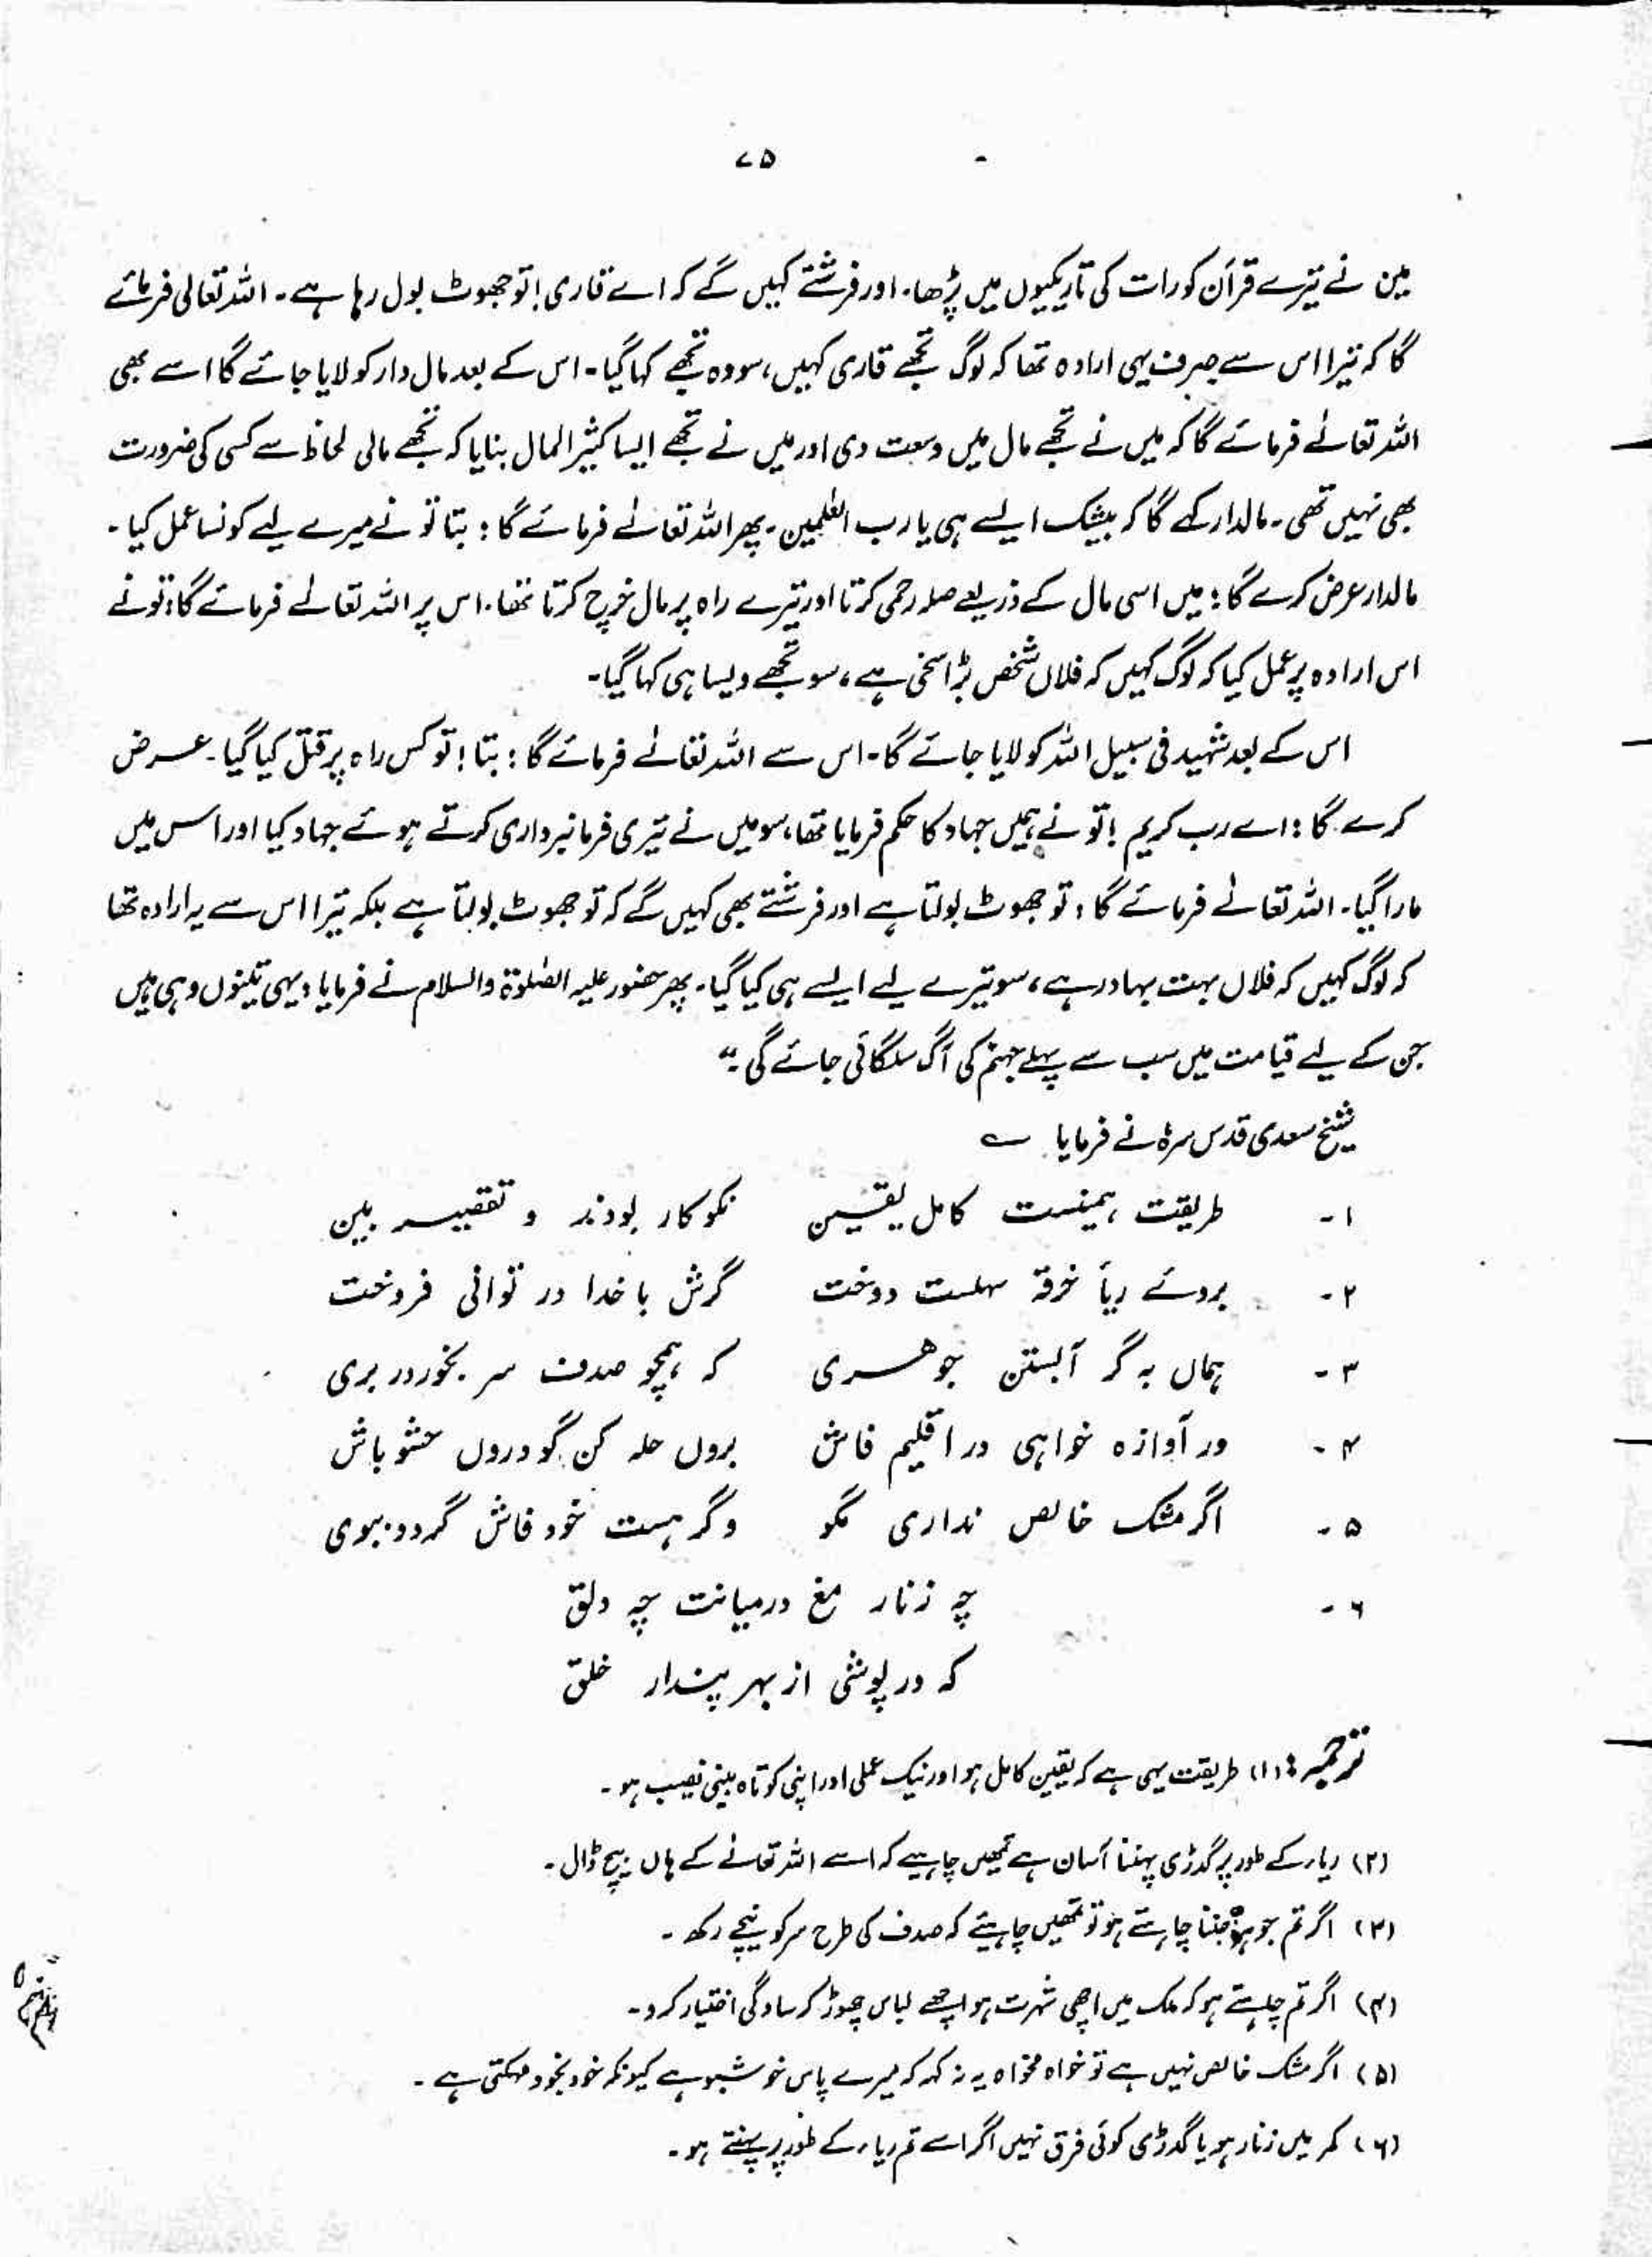 ۷۵
مین نے تیرے قرآن کو رات کی تاریکیوں میں پڑھا۔ اور فرشتے کہیں گے کہ اے قاری! تو جھوٹ بول رہا ہے۔ اللہ تعالی فرمائے
گا کہ تیرا اس سے صرف یہی ارادہ تھا کہ لوگ تجھے قاری کہیں، سو وہ تجھے کہا گیا۔ اس کے بعد مال دار کو لایا جائے گا اسے بھی
اللہ تعالٰے فرمائے گا کہ میں نے تجھے مال میں وسعت دی اور میں نے تجھے ایسا کثیر المال بنایا کہ تجھے مالی لحاظ سے کسی کی ضرورت
بھی نہیں تھی۔ مالدار کہے گا کہ بیشک ایسے ہی یا رب العٰلمین۔ پھر اللہ تعالٰے فرمائے گا : بتا تو نے میرے لیے کونسا عمل کیا۔
مالدار عرض کرے گا : میں اسی مال کے ذریعے صلہ رحمی کرتا اور تیرے راہ پر مال خرچ کرتا تھا۔ اس پر اللہ تعالٰے فرمائے گا : تو نے
اس ارادہ پر عمل کیا کہ لوگ کہیں کہ فلاں شخص بڑا سخی ہے، سو تجھے ویسا ہی کہا گیا۔
اس کے بعد شہید فی سبیل اللہ کو لایا جائے گا۔ اس سے اللہ تعالٰے فرمائے گا : بتا ! تو کس راہ پر قتل کیا گیا۔ عرض
کرے گا : اے رب کریم ! تو نے ہمیں جہاد کا حکم فرمایا تھا، سو میں نے تیری فرمانبرداری کرتے ہوئے جہاد کیا اور اس میں
مارا گیا۔ اللہ تعالٰے فرمائے گا : تو جھوٹ بولتا ہے اور فرشتے بھی کہیں گے کہ تو جھوٹ بولتا ہے بلکہ تیرا اس سے یہ ارادہ تھا
کہ لوگ کہیں کہ فلاں بہت بہادر ہے، سو تیرے لیے ایسے ہی کیا گیا۔ پھر حضور علیہ الصلٰوۃ والسلام نے فرمایا : یہی تینوں وہی ہیں
جن کے لیے قیامت میں سب سے پہلے جہنم کی آگ سلگائی جائے گی۔"
شیخ سعدی قدس سرہٗ نے فرمایا ؎
۱۔ طریقت ہمینست کامل یقین نکو کار بودند و تقصیر بین
۲۔ بروئے ریأ خرقہ سہلست دوخت گرش با خدا در توانی فروخت
۳۔ ہماں بہ گر آبستن جوھری کہ ہمچو صدف سر بخود در بری
۴۔ ور آوازہ خواہی در اقلیم فاش بروں حلہ کن گو دروں حشو باش
۵۔ اگر مشک خالص نداری مگو وگر ہست خود فاش گردد ببوی
۶۔ چہ زنار مغ درمیانت چہ دلق
کہ در پوشی از بہر پندار خلق
ترجمہ : (۱) طریقت یہی ہے کہ یقین کامل ہو اور نیک عملی اور اپنی کوتاہ بینی نصیب ہو۔
(۲) ریاء کے طور پر گدڑی پہننا آسان ہے تمھیں چاہیے کہ اسے اللہ تعالٰے کے ہاں بیچ ڈال۔
(۳) اگر تم جوہر جننا چاہتے ہو تو تمھیں چاہیئے کہ صدف کی طرح سر کو نیچے رکھ۔
(۴) اگر تم چاہتے ہو کہ ملک میں اچھی شہرت ہو اچھے لباس چھوڑ کر سادگی اختیار کرو۔
(۵) اگر مشک خالص نہیں ہے تو خواہ مخواہ یہ نہ کہہ کہ میرے پاس خوشبو ہے کیونکہ خود بخود مہکتی ہے۔
(۶) کمر میں زنار ہو یا گدڑی کوئی فرق نہیں اگر اسے تم ریاء کے طور پر پہنتے ہو۔